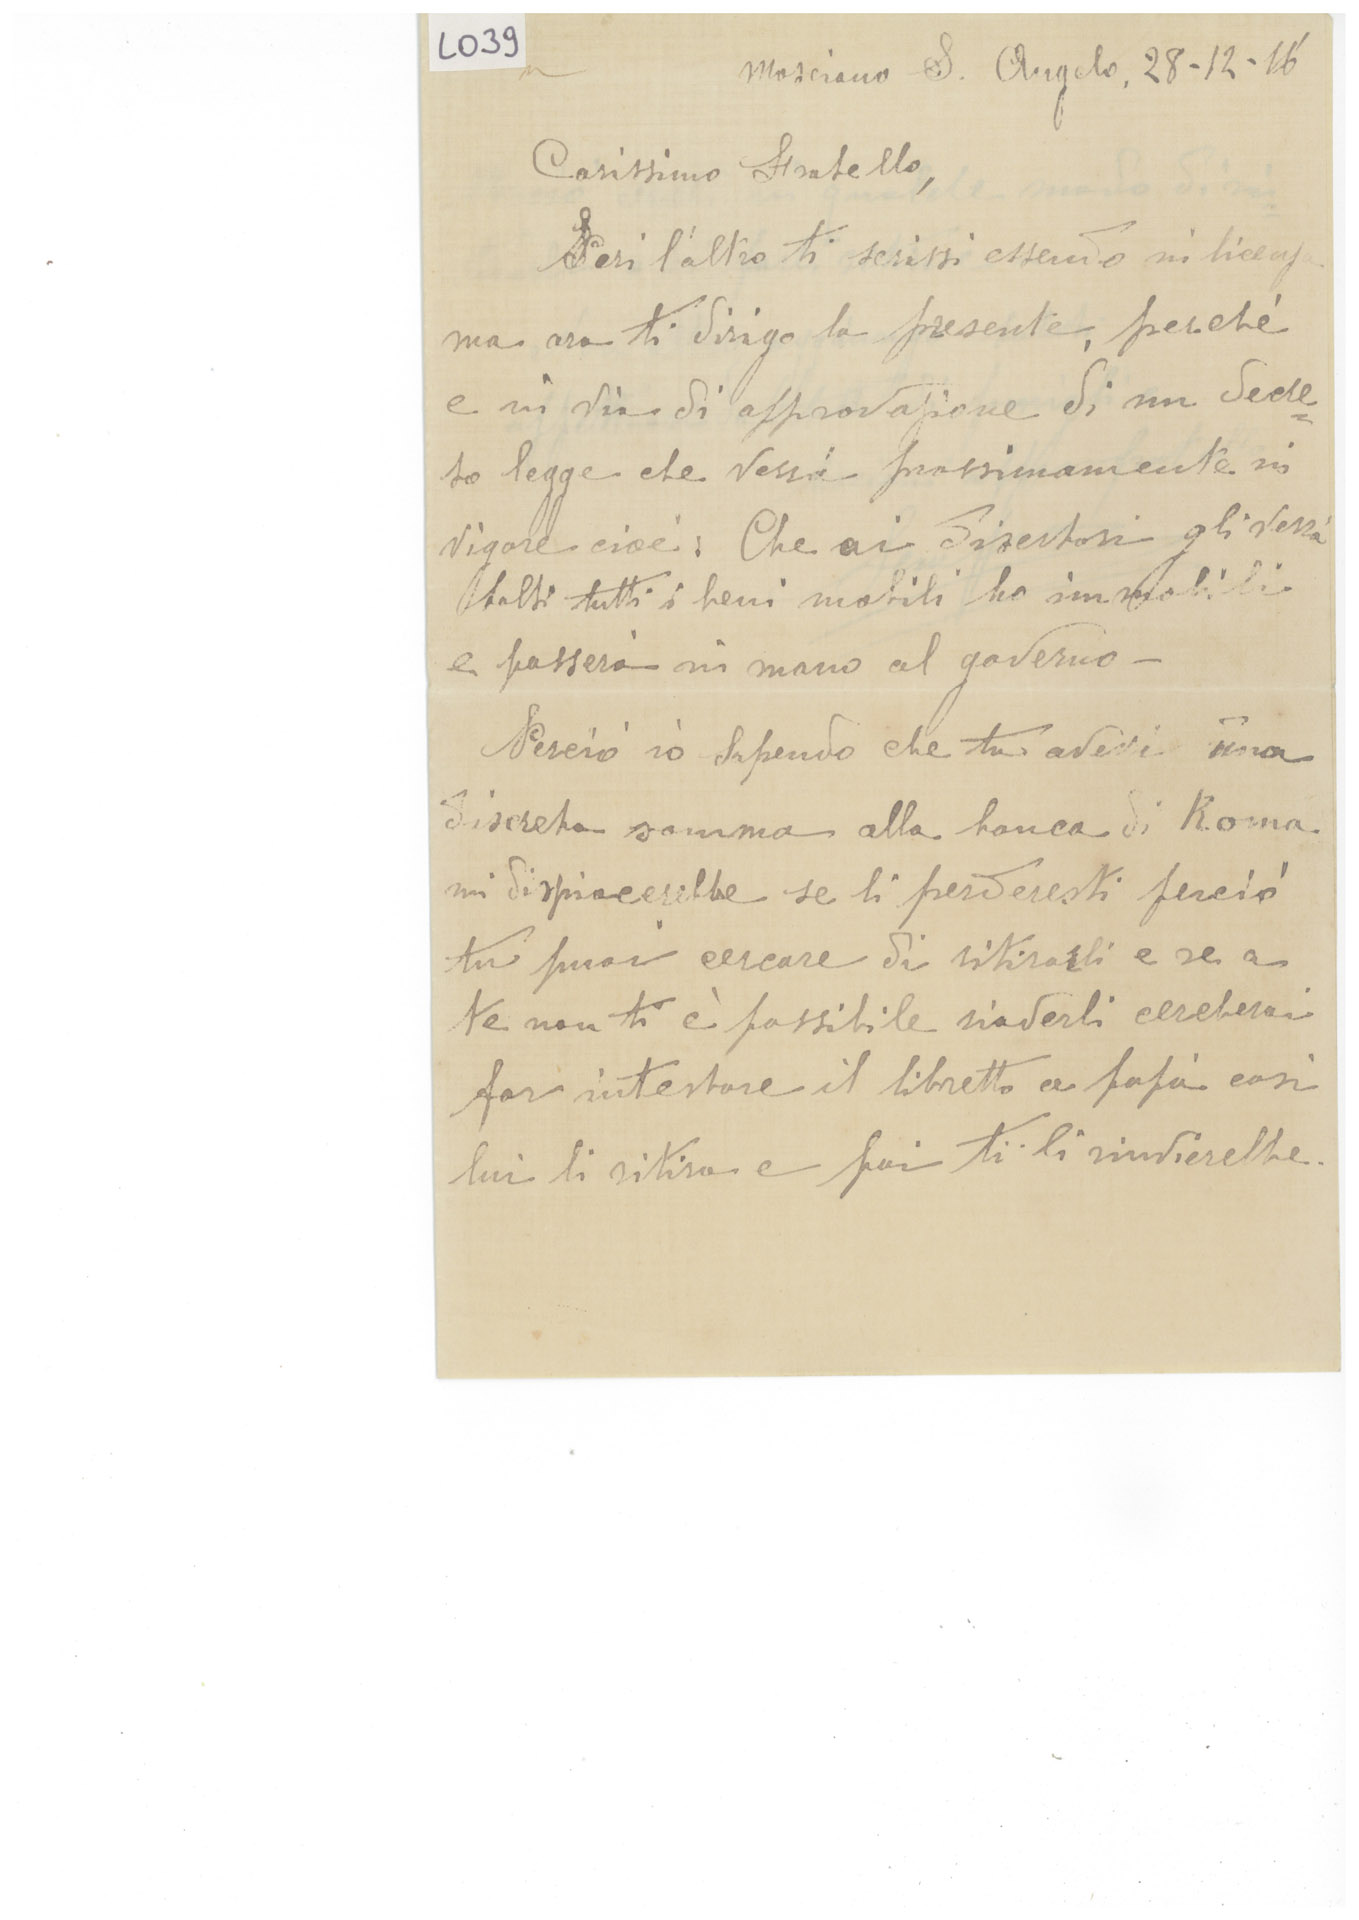 L039
Mosciano S. Angelo, 28-12-16
Carissimo Fratello,
Ieri l'altro ti scrissi essendo in licenza
ma ora ti dirigo la presente, perché
e in via di approvazione di un decre=
to legge che verrà prossimamente in
vigore cioè: Che ai disertori gli verrà
tolti tutti i beni mobili ho immobili
e passerà in mano al governo -
Perciò io sapendo che tu avevi una
discreta somma alla banca di Roma
mi dispiacerebbe se li perderesti perciò
tu puoi cercare di ritirarli e se a
te non ti è possibile riaverli cercherai
far intestare il libretto a papà così
lui li ritira e poi ti li rindierebbe.